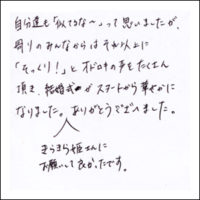 自分達も「似てるな〜」って思いましたが、
周りのみんなからはそれ以上に
「そっくり！」とオドロキの声をたくさん
頂き、結婚式がスタートから華やかに
なりました。ありがとうございました。
きらきら姫さんに
お願いして良かったです。